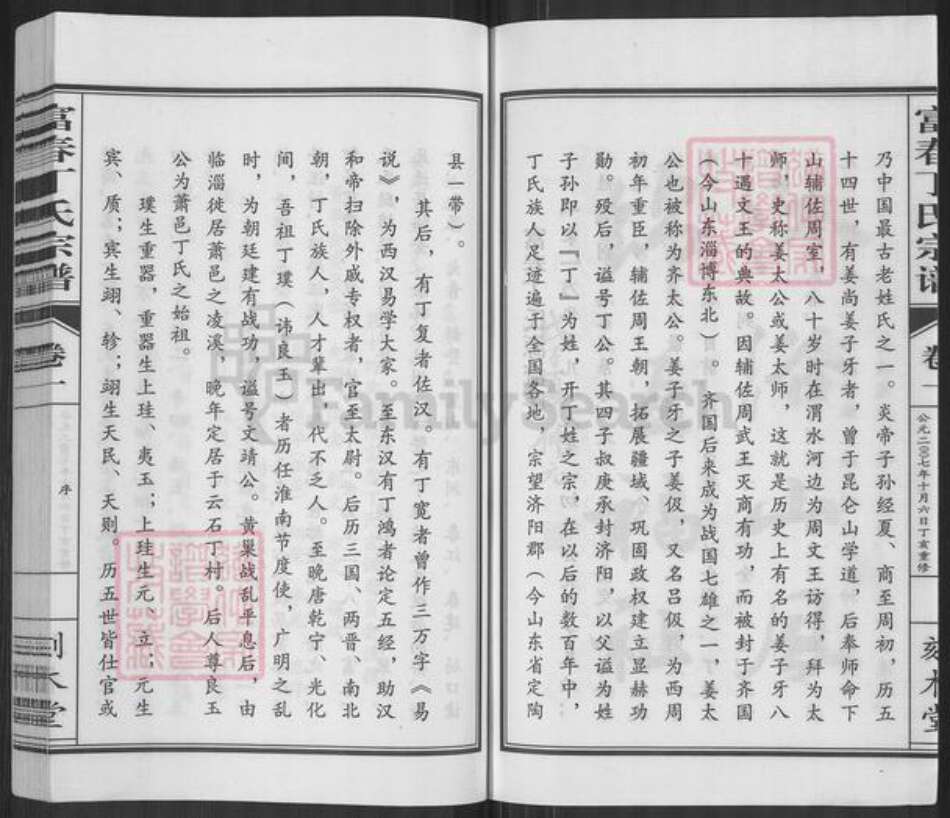 富春丁氏宗谱
卷一
公元二〇〇七年十月六日丁亥重修
乃中国最古老姓氏之一。炎帝子孙经夏、商至周初，历五
十四世，有姜尚姜子牙者，曾于昆仑山学道，后奉师命下
山辅佐周室，八十岁时在渭水河边为周文王访得，拜为太
师，史称姜太公或姜太师，这就是历史上有名的姜子牙八
十遇文王的典故。因辅佐周武王灭商有功，而被封于齐国
（今山东淄博东北）。齐国后来成为战国七雄之一，姜太
公也被称为齐太公。姜子牙之子姜伋，又名吕伋，为西周
初年重臣，辅佐周王朝，拓展疆域、巩固政权建立显赫功
勋。殁后，谥号丁公。其四子叔庚承封济阳，以父谥为姓
子孙即以『丁』为姓，开丁姓之宗，在以后的数百年中，
丁氏族人足迹遍于全国各地，宗望济阳郡（今山东省定陶
县一带）。
其后，有丁复者佐汉。有丁宽者曾作三万字《易
说》，为西汉易学大家。至东汉有丁鸿者论定五经，助汉
和帝扫除外戚专权者，官至太尉。后历三国、两晋、南北
朝，丁氏族人，人才辈出，代不乏人。至晚唐乾宁、光化
间，吾祖丁璞（讳良玉）者历任淮南节度使，广明之乱
时，为朝廷建有战功，谥号文靖公。黄巢战乱平息后，由
临淄徙居萧邑之凌溪，晚年定居于云石丁村。后人尊良玉
公为萧邑丁氏之始祖。
璞生重器，重器生上珪、夷玉；上珪生元、立；元生
宾、质；宾生翊、轸；翊生天民、天则。历五世皆仕官或
富春丁氏宗谱
卷一
序